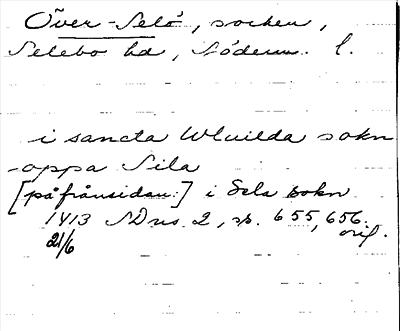 Över-Selö, socken,
Selebo hd, Söderm. l.
i sancta Wluilda sokn
oppa Sila
[på frånsidan:] i Sela sokn
1413 SDns 2, sp. 655, 656.
21/6 orig.